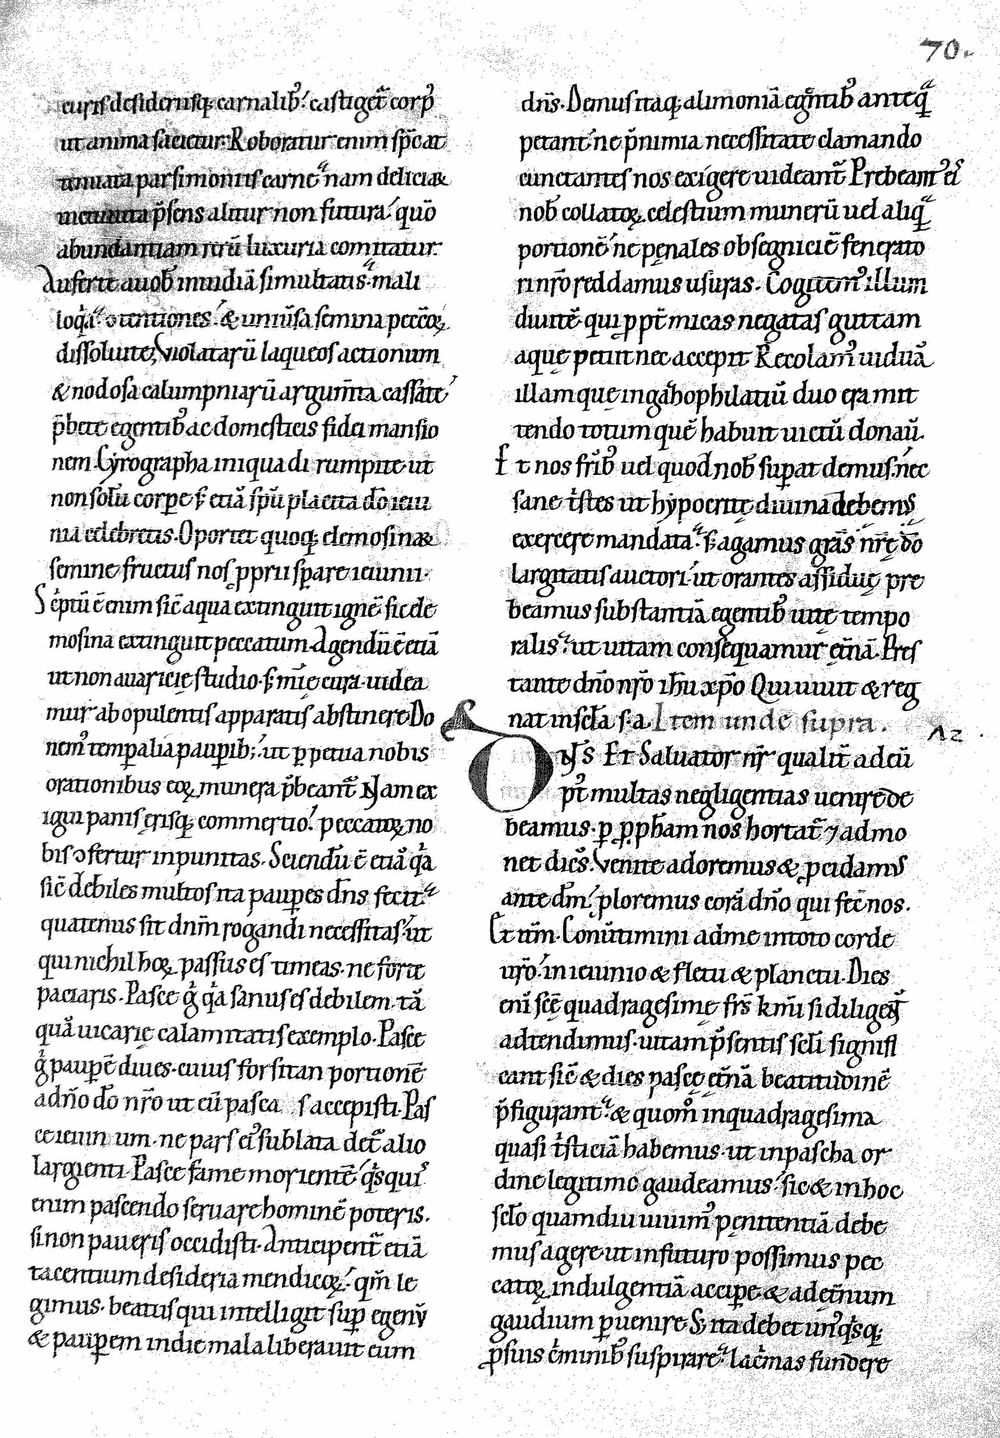 70.
curis desideriisq; carnalib᷒ castiget᷑ corp᷒
ut anima sacietur. Roborat᷑ur enim sp̅c at
tenuata parsimoniis carne. nam deliciaꝶ
p̅sens alitur non futura. quō
abundantiam rerū luxuria comitatur.
Auferte a uob̅ inuidiā simultatis. mali
loq̅a. ɔtentiones. & uniū̅sa semina peccōꝝ
dissoluite. Violatarū laqueos actionum
& nodosa calumpniarū argum̅ta cassate
p̅bete egentib᷒ ac domesticis fidei mansio
nem. Cyrographa iniqua dirumpite. ut
non solū corpe ꝫ etiā sp̅u placita dō ieiu
nia celebretis. Oportet quoq; elemosinaꝝ
semine fructus nos ꝓprii sꝑare ieiunii.
Sc̅ptū ē enim sic̅ aqua extinguit ignē sic ele
mosina extinguit peccatum. Agendū ē etiā
ut non auaricię studio ꝫ mi̅e cura. uidea
mur ab opulentis apparatis abstinere. Do
nem᷒ temꝑalia pauꝑib; ut ꝑpetua nobis
orationibus eoꝝ munera p̅beant᷑. Nam ex
igui panis ęrisq; commertio. peccatoꝝ no
bis ɔfertur inpunitas. Sciendū ē etiā q̅a
sic̅ debiles multos ita pauꝑes dn̅s fecit.
quatenus sit dn̅m rogandi necessitas. ut
qui nichil hoꝝ passus es timeas. ne forte
paciaris. Pasce g̅ q̅a sanus es debilem. tā
quā uicarię calamitatis exemplo. Pasce
g̅ pauꝑē diues. cuius forsitan portionē
a dn̅o dō nr̅o ut eū pascas accepisti. Pas
ce ieiunium. ne pars ei᷒ sublata det᷑ alio
largienti. Pasce fame morientē. q̅squis
enim pascendo seruare hominē poteris.
si non paueris occidisti. Anticipent᷑ etiā
tacentium desideria mendicoꝝ. qm̅ le
gimus. beatus qui intelligit suꝑ egenū
& pauꝑem in die mala liberauit eum
dn̅s. Demus itaq; alimoniā egn̅tib᷒ anteq̅
petant. ne p̅ nimia necessitate clamando
cunctantes nos exigere uideant᷑. Prebeam᷒ ei᷒
nob̅ collatoꝝ celestium munerū uel aliq̅
portionē. ne penales ob segniciē fenerato
ri nr̅o reddamus usuras. Cogitem᷒ illum
diuitē qui ꝓpt̅ micas negatas guttam
aquę petiit nec accepit. Recolam᷒ uiduā
illam quę in gazophilatiū duo era mit
tendo totum que̅ habuit uictū donau̅.
Et nos fr̅ib᷒ uel quod nob̅ suꝑat demus. nec
sane t̅stes ut hypocritę diuina debem᷒
exercere mandata. ꝫ agamus gr̅as nr̅ę dō
largitatis auctori. ut orantes assiduę pre
beamus substantiā egentib᷒ uitę tempo
ralis. ut uitam consequamur ęt̅nā. Pres
tante dn̅o nr̅o ih̅u xp̅o Qui uiuit & reg
nat in sc̅la s. a. Item unde supra.
Az.
Dn̅s Et Saluator nr̅ qualit̅ ad eū
p̅t multas negligentias uenire de
beamus. ꝑ ꝓph̅am nos hortat᷑ ⁊ admo
net dic̅s. Venite adoremus & ꝓcidam᷒
ante dm̅. ploremus corā dn̅o qui fec̅ nos.
Et it̅m. Conu̅timini ad me in toto corde
ur̅o. in ieiunio & fletu & planctu. Dies
eni̅ sc̅ę quadragesimę frs̅ kmi̅ si diligent̅
adtendimus. uitam p̅sentis sc̅li signifi
cant sic̅ & dies pascę ęt̅nā beatitudinē
p̅figurant᷑. & quom̊ in quadragesima
quasi t̅sticiā habemus. ut in pascha or
dine legitimo gaudeamus. sic & in hoc
sc̅lo quamdiu uiuim᷒ penitentiā debe
mus agere. ut in futuro possimus pec
catoꝝ indulgentiā acciꝑe. & ad et̅num
gaudium ꝑuenire. S; ita debet un᷒q̅sq;
ꝓ suis c̅minib᷒ suspirare. lac̅mas fundere